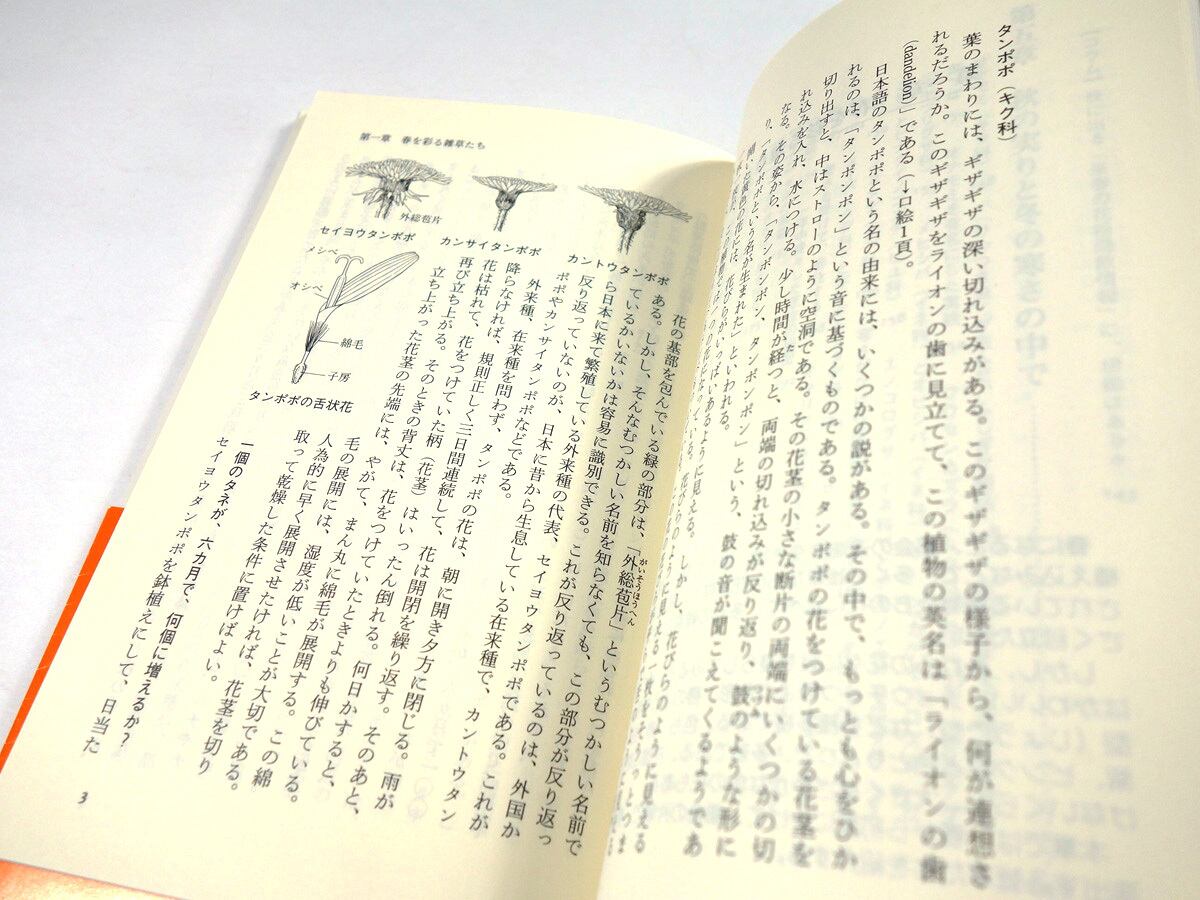 タンポポ（キク科）
葉のまわりには、ギザギザの深い切れ込みがある。このギザギザの様子から、何が連想さ
れるだろうか。このギザギザをライオンの歯に見立てて、この植物の英名は「ライオンの歯
（dandelion）」である（→口絵1頁）。
日本語のタンポポという名の由来には、いくつかの説がある。その中で、もっとも心をひか
れるのは、「タンポンポン」という音に基づくものである。タンポポの花をつけている花茎を
切り出すと、中はストローのように空洞である。その花茎の小さな断片の両端にいくつかの切
れ込みを入れ、水につける。少し時間が経つと、両端の切れ込みが反り返り、鼓のような形に
なる。その姿から、「タンポンポン、タンポンポン」という、鼓の音が聞こえてくるようであ
り、「タンポポという名が生まれた」といわれる。
第一章　春を彩る雑草たち
外総苞片
セイヨウタンポポ
カンサイタンポポ
カントウタンポポ
メシベ
オシベ
綿毛
子房
タンポポの舌状花
花の基部を包んでいる緑の部分は、「外総苞片」というむつかしい名前で
がいそうほうへん
ある。しかし、そんなむつかしい名前を知らなくても、この部分が反り返っ
ているかいないかは容易に識別できる。これが反り返っているのは、外国か
ら日本に来て繁殖している外来種の代表、セイヨウタンポポである。これが
反り返っていないのが、日本に昔から生息している在来種で、カントウタン
ポポやカンサイタンポポなどである。
外来種、在来種を問わず、タンポポの花は、朝に開き夕方に閉じる。雨が
降らなければ、規則正しく三日間連続して、花は開閉を繰り返す。そのあと、
花は枯れて、花をつけていた柄（花茎）はいったん倒れる。何日かすると、
再び立ち上がる。そのときの背丈は、花をつけていたときよりも伸びている。
立ち上がった花茎の先端には、やがて、まん丸に綿毛が展開する。この綿
毛の展開には、湿度が低いことが大切である。
人為的に早く展開させたければ、花茎を切り
取って乾燥した条件に置けばよい。
一個のタネが、六カ月で、何個に増えるか？
セイヨウタンポポを鉢植えにして、日当た
3